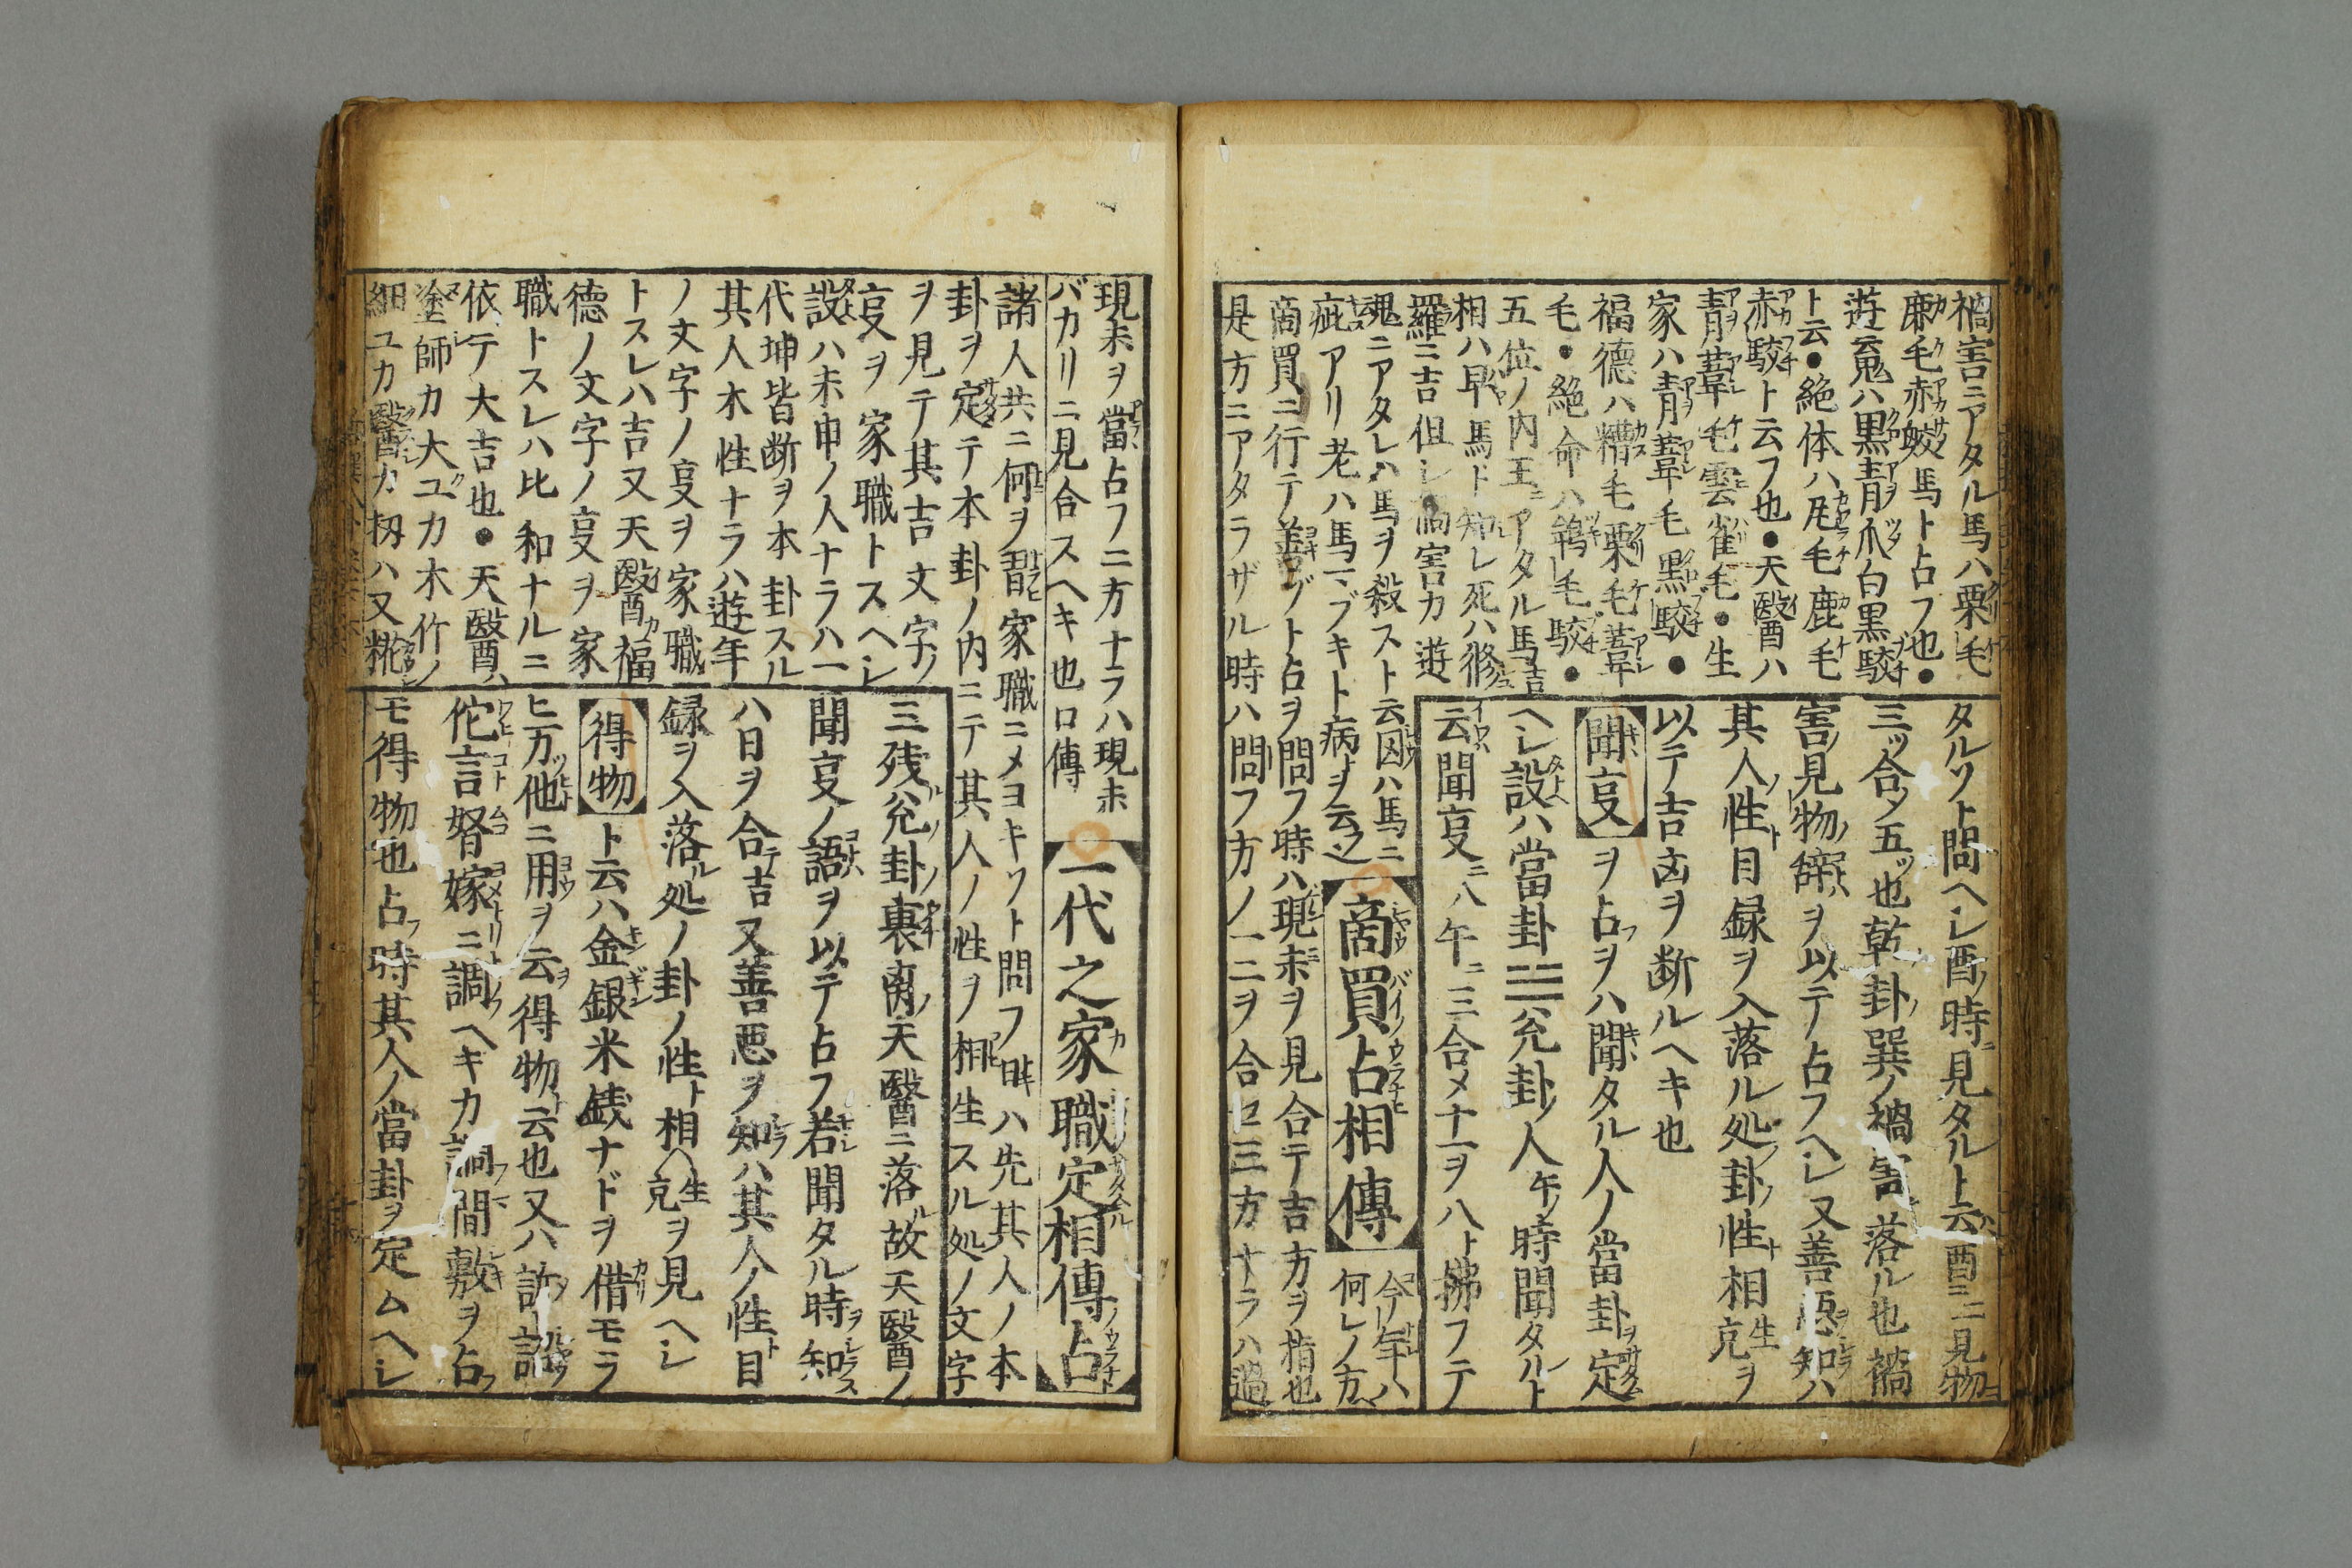 禍害ニアタル馬ハ栗毛
𪊧毛赤鮫馬ト占フ也●
遊䰟ハ黒青爪白黒駮
ト云●絶体ハ毛鹿毛
赤駮ト云フ也●天醫ハ
青葦毛雲雀毛●生
家ハ青葦毛黒駮●
福德ハ糟毛栗毛葦
毛●絶命ハ鴾毛駮●
五位ノ内王ニアタル馬吉
相ハ早馬ト知レ死ハ修
羅ニ吉但レ禍害カ遊
魂ニアタレハ馬ヲ殺ストト云囚ハ馬ニ
疵アリ老ハ馬マブキト病ヲ云之
タルソト問ヘレ酉ノ時ニ見タルト云ハ酉ニ二見物ニ
三ッ合メ五ッ也乾卦ノ巽ノ禍害ニ落ル也禍
害ノ見物ノ辞ヲ以テ占フヘレ又善悪ヲ知ハ
其人ノ性ト目録ヲ入落ル処ノ卦ノ性ト相生克ヲ
以テ吉凶ヲ断ルヘキ也
聞㕝
ヲ占フヲハ聞タル人ノ當卦ヲ定
ヘレ設ハ當卦☱兊卦ノ人午ノ時聞タルト
云ハ聞㕝ニ八午ニ三合メ十一ヲ八ト拂フテ
商買占相傳
今年ハ何レノ方ヘ
商買ニ行テ善ヅト占ヲ問フ時ハ現未ヲ見合テ吉方ヲ指也
是方ニアタラザル時ハ問フ方ノ一二ヲ合セ三方ナラハ過
現未ヲ當占フニ方十ラハ現未
バカリニ見合スヘキ也口傳
一代之家職定相傳占
諸人共ニ何ヲ習ヒ家職ニメヨキソト問フ時ハ先其人ノ本
卦ヲ定テ本卦ノ内ニテ其人ノ性ヲ相生スル処ノ文字
ヲ見テ其吉文字ノ
㕝ヲ家職トスヘレ
設ハ未申ノ人ナラハ一
代坤皆断ヲ本卦スル
其人木性ナラハ遊年
ノ文字ノ㕝ヲ家職
トスレハ吉又天醫カ福
德ノ文字ノ㕝ヲ家
職トスレハ比和ナルニ
依テ大吉也●天醫ハ
塗師カ大工カ木竹ノ
細工カ醫カ扨ハ又糀
三残兊卦ノ裏ノ南ノ天醫ニ落ル故天醫ノ
聞㕝ノ語ヲ以テ占フ若聞タル時ヲ知ラス
ハ日ヲ合テ吉又善悪ヲ知ハ其人ノ性ト目
録ヲ入落ル処ノ卦ノ性ト相生克ヲ見ヘレ
得物
ト云ハ金銀米銭ナドヲ借モラ
ヒ万ッ他ニ用ヲ云ヲ得物ト云也又ハ訴訟
侘言婿嫁ニ調ヘキカ調間敷ヲ占フ
モ得物也占フ時其人ノ當卦ヲ定ムヘレ